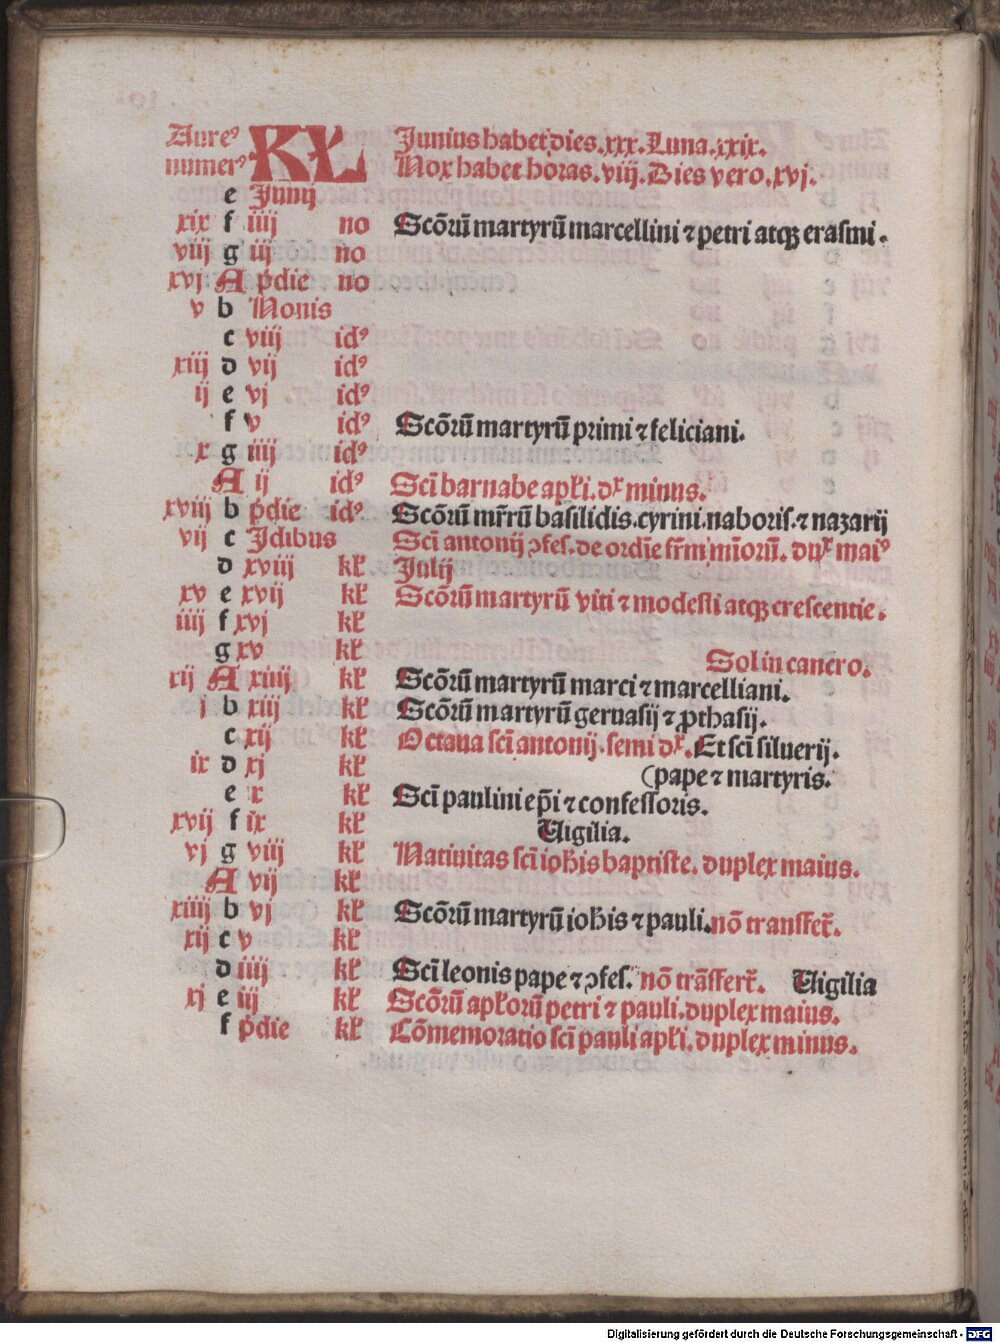 Aureꝰ KŁ Junius habet dies.xxx.Luna.xxix.
numerꝰ Nox habet horas.viij.Dies vero.xvj.
e Junij
xix f iiij no Scōrū martyrū marcellini ⁊ petri atqꝫ erasmi.
viij g iij no
xvj A p̄die no
v b Nonis
c viij idꝰ
xiij d vij idꝰ
ij e vj idꝰ
f v idꝰ Scōrū martyrū primi ⁊ feliciani.
x g iiij idꝰ
A ij idꝰ Scī barnabe apłi.dx̄ minus.
xviij b p̄die idꝰ Scōrū mr̄rū basilidis.cyrini.naboris.⁊ nazarij
vij c Jdibus Scī antonij ↄfes.de ordīe fr̄m mīorū.dux̄ maiꝰ
d xviij kł Julij
xv e xvij kł Scōrū martyrū viti ⁊ modesti atqꝫ crescentie.
iiij f xvj kł
g xv kł Sol in cancro.
xij A xiiij kł Scōrū martyrū marci ⁊ marcelliani.
j b xiij kł Scōrū martyrū geruasij ⁊ ꝓthasij.
c xij kł Octaua scī antonij.semi dx̄.Et scī siluerij.
ix d xj kł (pape ⁊ martyris.
e x kł Scī paulini ep̄i ⁊ confessoris.
xvij f ix kł Uigilia.
vj g viij kł Natiuitas scī ioħis baptiste.duplex maius.
A vij kł
xiiij b vj kł Scōrū martyrū ioħis ⁊ pauli.nō transfert̄.
xij c v kł
d iiij kł Scī leonis pape ⁊ ↄfes. nō trāsfert̄. Uigilia
xj e iij kł Scōrū apłorū petri ⁊ pauli.duplex maius.
f p̄die kł Cōmemoratio scī pauli apłi.duplex minus.
Digitalisierung gefördert durch die Deutsche Forschungsgemeinschaft - DFG